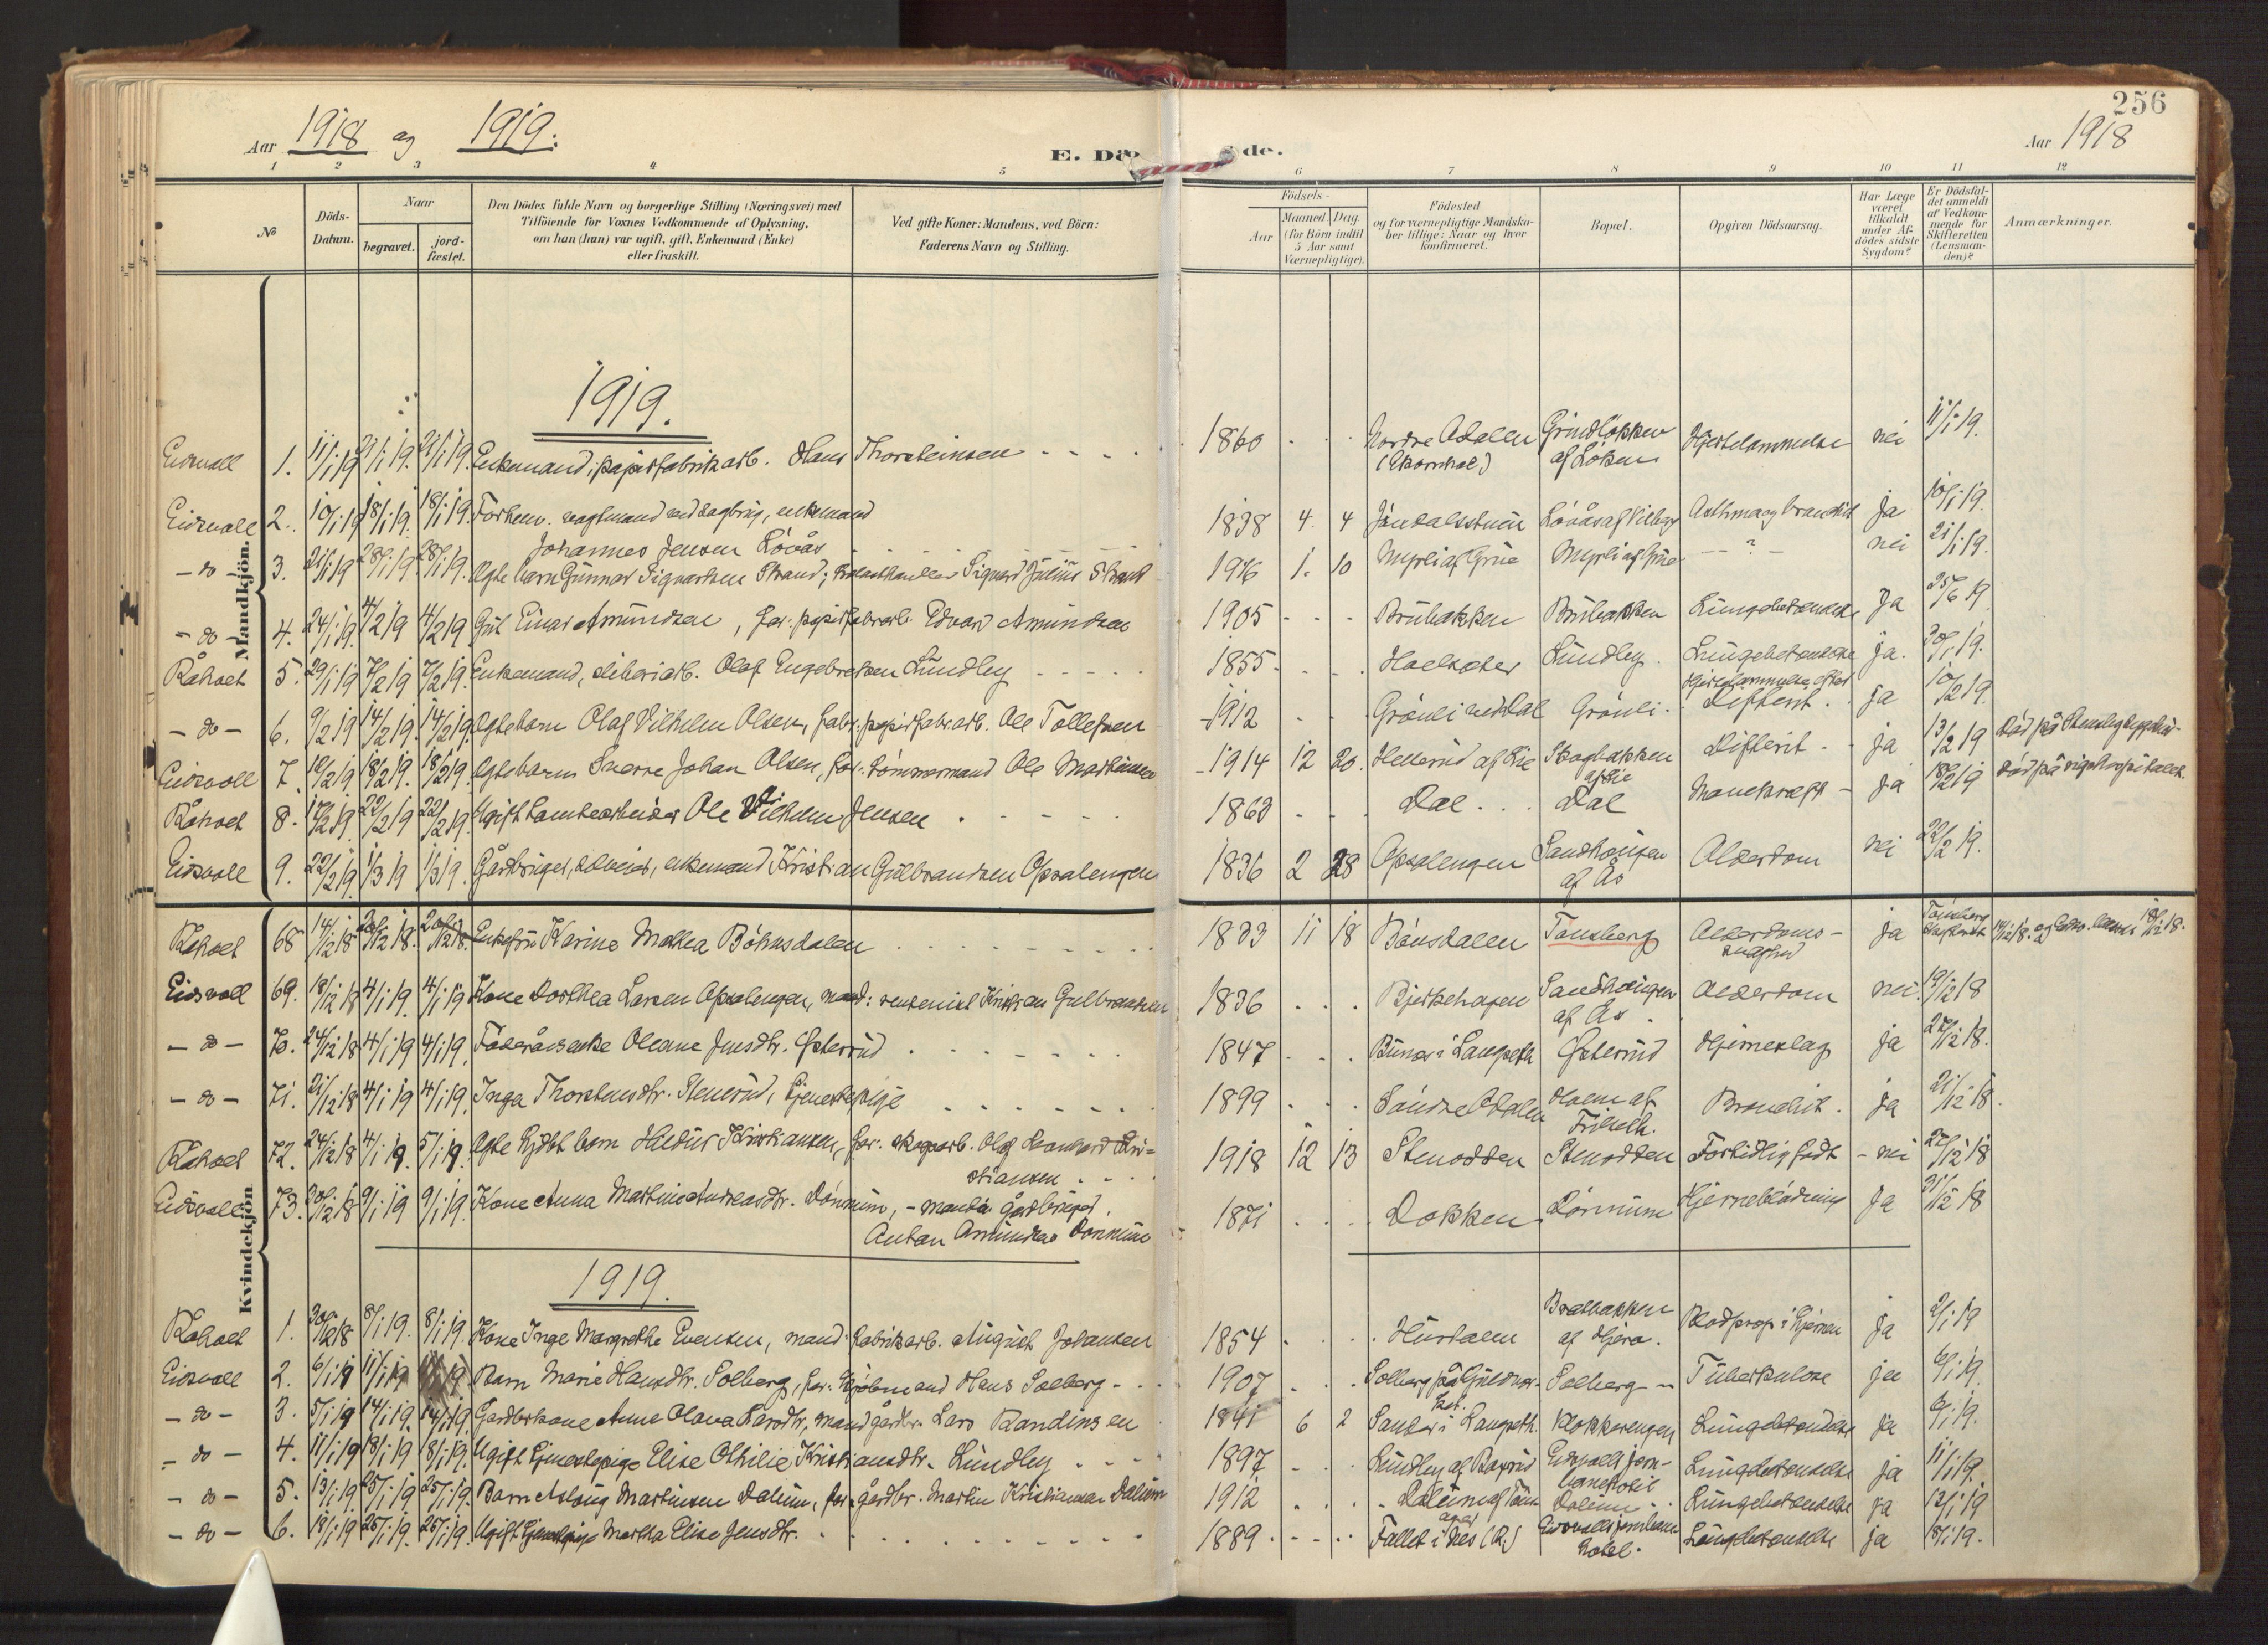 256
Aar 1918 og 1919.
E. Dø de.
Aar 1918
1 2 3 4 5 6 7 8 9 10 11 12
№
Döds-
Datum.
Naar
begravet.
jord-
fæstet.
Den Dödes fulde Navn og borgerlige Stilling (Næringsvei) med
Tilföiende for Voxnes Vedkommende af Oplysning,
om han (hun) var ugift, gift, Enkemand (Enke)
eller fraskilt.
Ved gifte Koner: Mandens, ved Börn:
Faderens Navn og Stilling.
Födsels-
Aar
Maaned. Dag.
(for Börn indtil
5 Aar samt
Værnepligtige).
Födested
og for værnepligtige Mandska-
ber tillige: Naar og hvor
konfirmeret.
Bopæl.
Opgiven Dödsaarsag.
Har Læge
været
tilkaldt
under Af-
dödes sidste
Sygdom?
Er Dödsfal-
det anmeldt
af Vedkom-
mende for
Skifteretten
(Lensman-
den)?
Anmærkninger.
Mandkjön.
1919.
Eidsvoll 1. 11/1 19 21/1 19. 21/1 19. Enkemand, papirfabrikarb. Hans Thorsteinsen 1860 Nordre Odalen Grindløkken Hjertelammelse nei 11/1 19.
af Løken
Eidsvoll 2. 10/1 19 18/1 19. 18/1 19. Forhenv. vagtmand ved sagbrug, enkemand
Johannes Jensen Løvås 1838 4 4 Løvås af Asthma og bronchit ja 10/1 19.
- do - 3. 21/1 19 28/1 19. 28/1 19. Ægte barn Gunnar Sigvartsen Strand; Sigvard Julius Strand 1916 1. 10 Myrli af Grue Myrli af Grue - ? - nei 21/1 19.
- do - 4. 24/1 19. 4/2 19 4/2 19. Gut Einar Amundsen, far: papirfabrarb. Edvard Amundsen 1905 Brubakken Brubakken Lungebetændelse ja
Råholt 5. 29/1 19 7/2 19 7/2 19. Enkemand, sliberiarb. Olaf Engebretsen Lundley 1855 Lundley. Lungebetændelse ja. 30/1 19.
- do - 6. 9/2 19 14/2 19. 14/2 19. Ægtebarn Olaf Vilhelm Olsen, far: papirfabr.arb. Ole Tollefsen 1912 Grønli ved Dal Grønli. Hjertelammelse efter difterit. ja 10/2 19.
Eidsvoll 7. 12/2 19 18/2 19. 18/2 19. Ægtebarn Sverre Johan Olsen, far: tømmermand Ole Martinsen 1914 12 20. Hellerud af Lie Skogbakken Difterit - ja 13/2 19
af Lie
Råholt 8. 17/2 19. 22/2 19 22/2 19. Ugift tomtearbeider Ole Vilhelm Jensen 1863 Dal Dal Mavekræft - ja 18/2 19 Død på rigshospitalet.
Eidsvoll 9. 22/2 19. 1/3 19 1/3 19. Gårdbruger, selveier, enkemand Kristian Gulbrandsen Opsalengen 1836 2 28 Opsalengen Sandhaugen Alderdom nei 22/2 19.
af Ås
Kvindekjön
Råholt 68 14/12 18 20/12 18. 20/12 18. Enkefru Karine Mathea Bøhnsdalen 1833 11 18 Bønsdalen Tønsberg Alderdoms- ja Tønsberg
svaghed
Eidsvoll 69. 18/12 18 4/1 19. 4/1 19 Kone Dorthea Larsen Opsalengen, mand: rentenist Kristian Gulbrandsen 1836 Bjerkehagen Sandhaugen Alderdom nei. 19/12 18
af Ås
- do - 70. 24/12 18 4/1 19 4/1 19. Føderådsenke Oleane Jensdtr. Østerud 1847 i Langseth Østerud Hjerneslag ja 27/12 18.
- do - 71. 21/12 18 4/1 19 4/1 19. Inga Thorstensdtr. Stenerud, tjenestepige 1899 Søndre Odalen Holm af Bronchit. ja 21/12 18.
Råholt 72. 24/12 18 4/1 19. 5/1 19. Ægte barn Kristiansen, far: skogsarb. Olaf Leonhard Kri=
stiansen 1918 12 13 Stenodden Stenodden Fortidlig født - nei 27/12 18
Eidsvoll 73. 30/12 18 9/1 19 9/1 19. Kone Anna Martine Andreasdtr. Dønnum, - mand: gårdbruger
Anton Amundsen Dønnum 1871 Dokken Dønnum Hjerneblødning ja 31/12 18
1919.
Råholt 1. 30/12 18 8/1 19. 8/1 19. Kone Inge Margrethe Evensen, mand: fabrikarb. August Johansen 1854 Hurdalen Brathakken Blodprop i hjernen ja 2/1 19
af Hjera.
Eidsvoll 2. 6/1 19 11/1 19 Barn Marie Hansdtr. Solberg, far: Hans Solberg 1907 Solberg på Solberg Tuberkulose ja 6/1 19.
- do - 3. 5/1 19 14/1 19. 14/1 19. Gårdbr.kone Anne Olava Larsdtr, mand gårdbr. Lars Randinsen 1841 6 2 i Langseth. Klokkerengen Lungebetændelse ja 6/1 19.
- do - 4. 11/1 19 18/1 19 18/1 19. Ugift tjenestepige Elise Othilie Kristiansdtr. Lundley 1897 Lundley af Eidsvoll jern- Lungebetændelse ja 11/1 19.
banehotel
- do - 5. 13/1 19. 25/1 19 25/1 19. Barn Aslaug Martinsen Dalum, far: gårdbr. Martin Kristiansen Dalum 1912 Dalum Lungebetændelse ja
- do - 6. 18/1 19 25/1 19. 25/1 19. Ugift tjenestepige Martha Elise Jensdtr. 1889 Fallet i Nes (R.) Eidsvoll jernbane Lungebetændelse ja 18/1 19.
hotel.